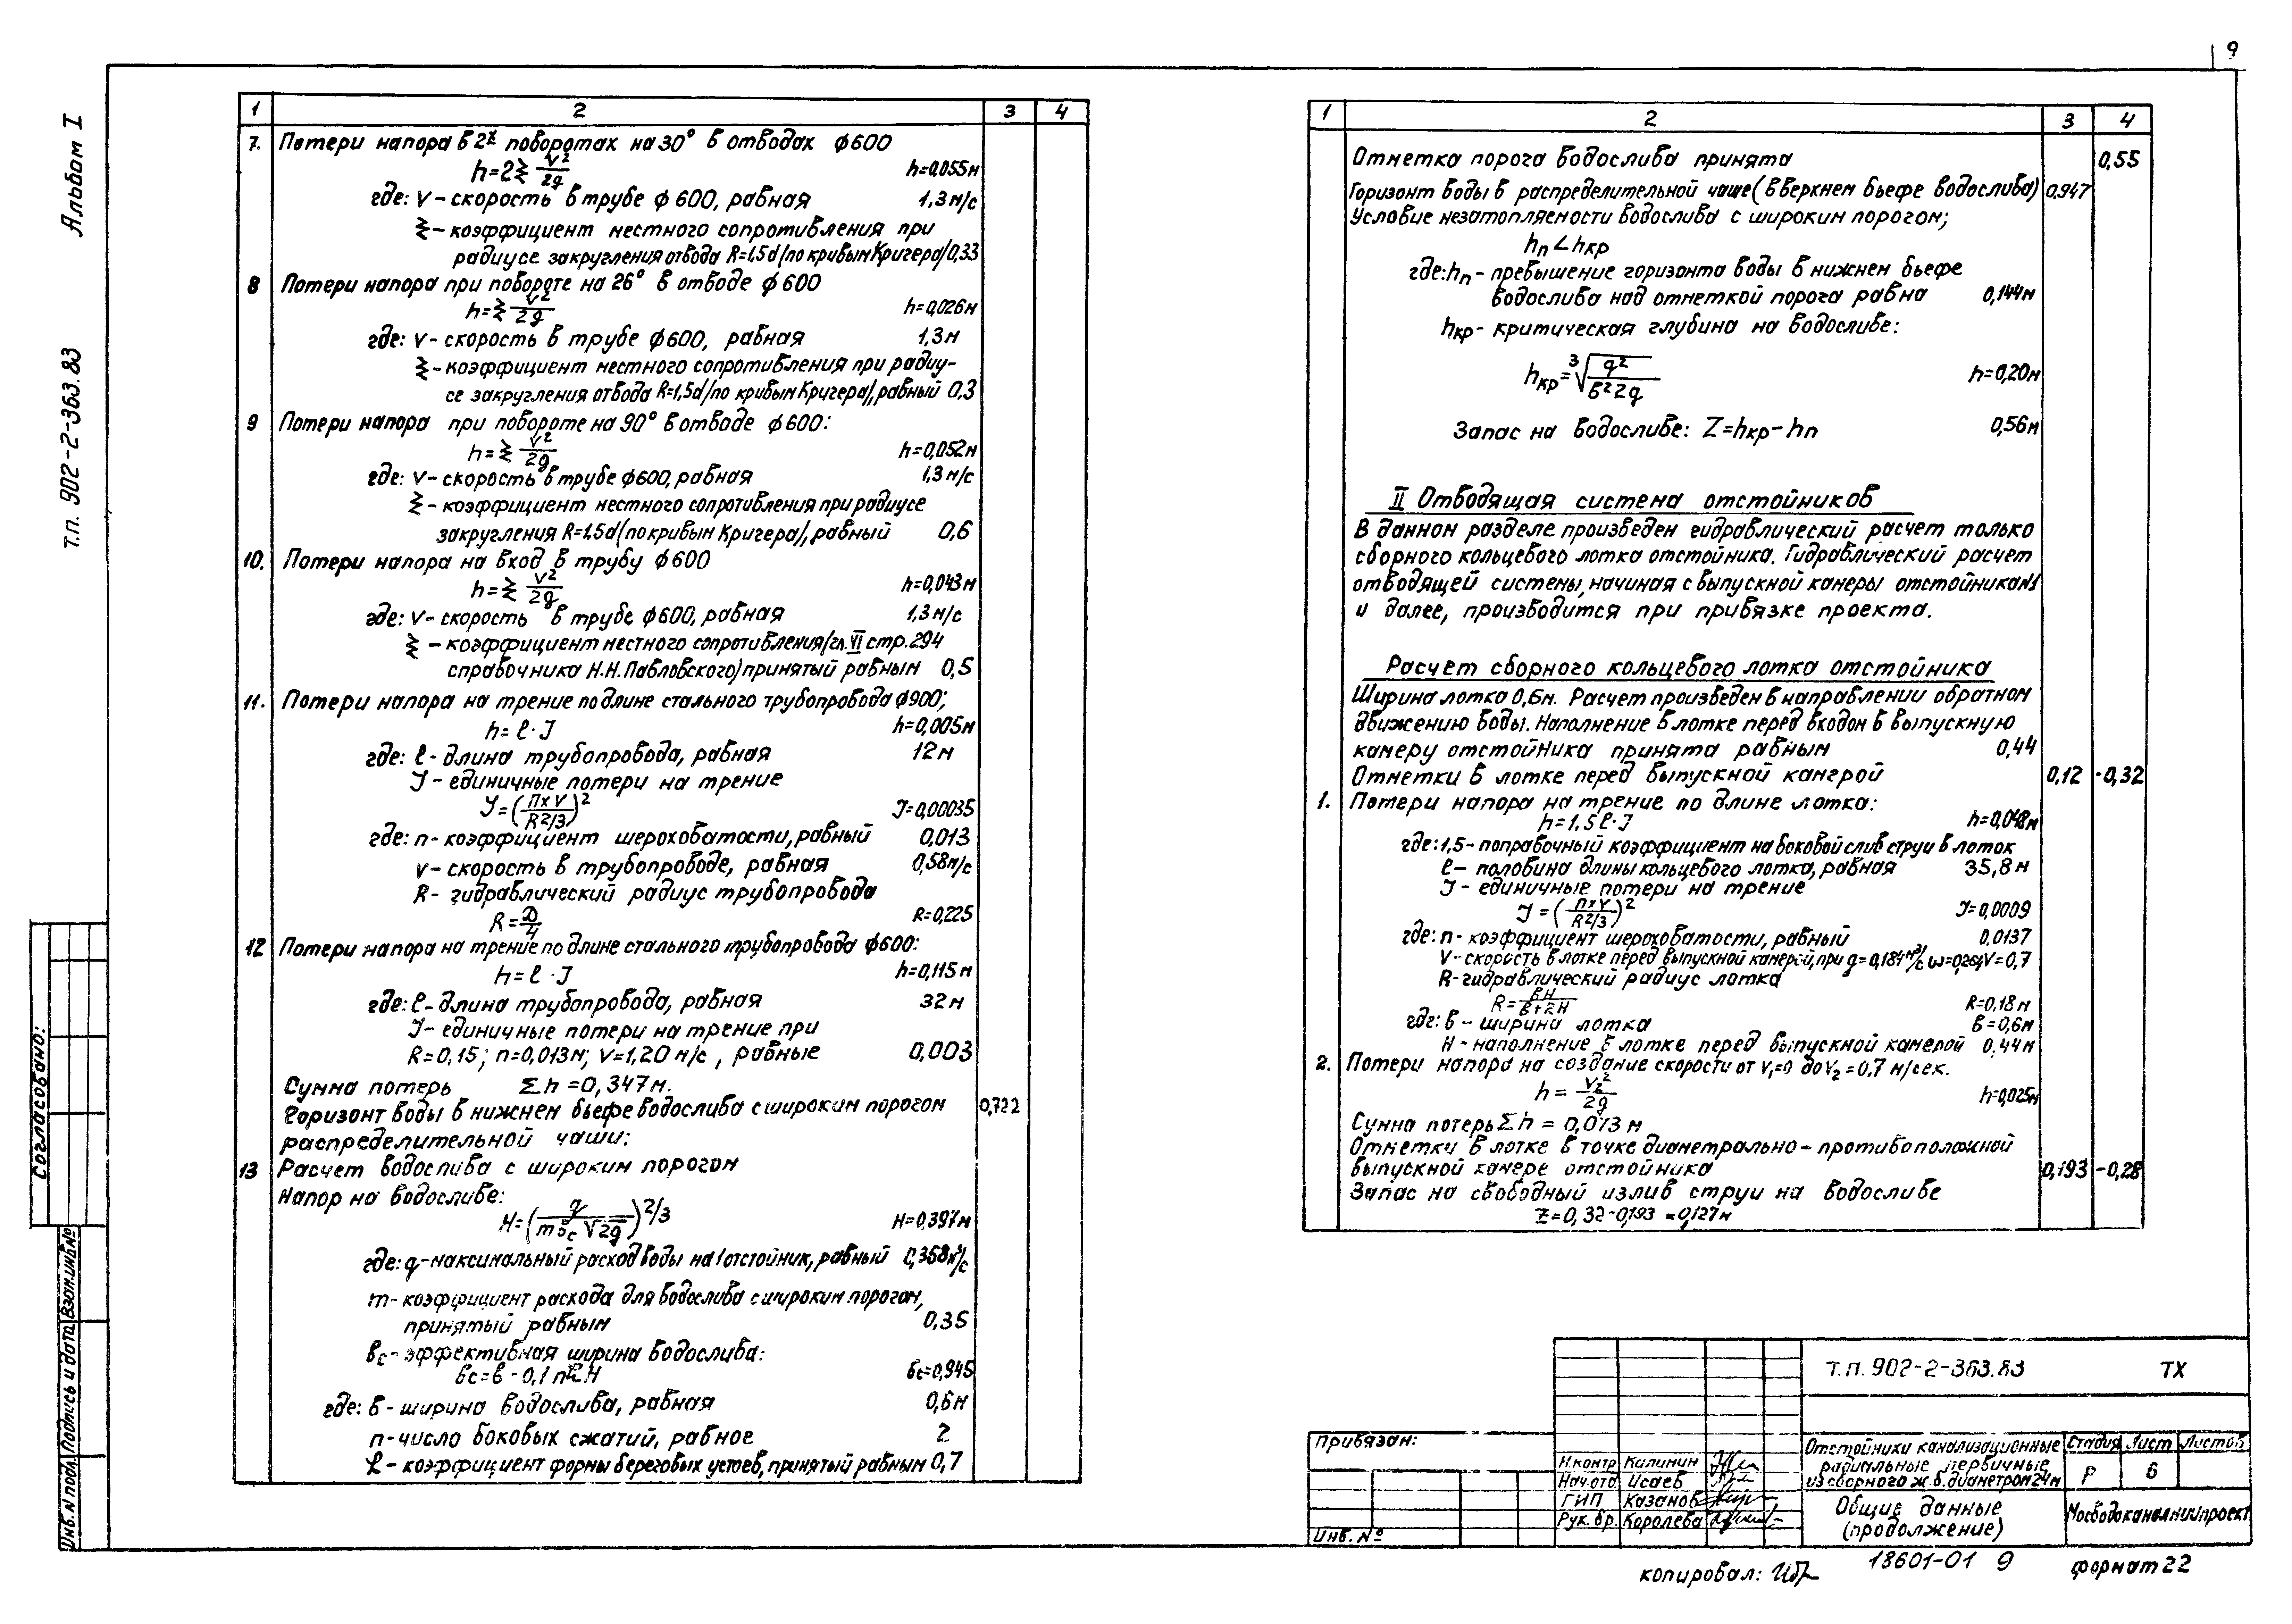 9
Альбом I
т.п. 902-2-363.83
1 2 3 4
7. Потери напора в 2х поворотах на 30° в отводах ϕ600
h=2ξ v²/2g h=0,055м
где: v - скорость в трубе ϕ 600, равная 1,3 м/с
ξ - коэффициент местного сопротивления при
радиусе закругления отвода R=1,5d/по кривым Кригера/0,33
8 Потери напора при повороте на 26° в отводе ϕ 600
h=ξ v²/2g h=0,026м
где: v - скорость в трубе ϕ600, равная 1,3м
ξ - коэффициент местного сопротивления при радиу-
се закругления отвода R=1,5d/по кривым Кригера/, равный 0,3
9 Потери напора при повороте на 90° в отводе ϕ600:
h=ξ v²/2g h=0,052м
где: v - скорость в трубе ϕ600, равная 1,3 м/с
ξ - коэффициент местного сопротивления при радиусе
закругления R=1,5d(по кривым Кригера/, равный 0,6
10. Потери напора на вход в трубу ϕ600
h=ξ v²/2g h=0,043м
где: v - скорость в трубе ϕ600, равная 1,3 м/с
ξ - коэффициент местного сопротивления/гл. VI стр.294
справочника Н.Н. Павловского) принятый равным 0,5
11. Потери напора на трение по длине стального трубопровода ϕ900;
h=ℓ·J h=0,005м
где: ℓ - длина трубопровода, равная 12м
J - единичные потери на трение
J=(n×v/R2/3)² J=0,00035
где: n - коэффициент шероховатости, равный 0,013
v - скорость в трубопроводе, равная 0,58м/с
R - гидравлический радиус трубопровода
R=D/4 R=0,225
12 Потери напора на трение по длине стального трубопровода ϕ600:
h=ℓ·J h=0,115м
где: ℓ - длина трубопровода, равная 32м
J - единичные потери на трение при
R=0,15; n=0,013м; v=1,20 м/с, равные 0,003
Сумма потерь Σh=0,347м.
Горизонт воды в нижнем бьефе водослива с широким порогом 0,722
распределительной чаши:
13 Расчет водослива с широким порогом
Напор на водосливе:
H=(q/m вc √2g)2/3 H=0,397м
где: q - максимальный расход воды на 1 отстойник, равный 0,358м³/с
m - коэффициент расхода для водослива с широким порогом,
принятый равным 0,35
вc - эффективная ширина водослива:
вc=в-0,1 n H вc=0,945
где: в - ширина водослива, равная 0,6м
n - число боковых сжатий, равное 2
- коэффициент формы береговых устоев, принятый равным 0,7
1 2 3 4
Отметка порога водослива принята 0,55
Горизонт воды в распределительной чаше (в верхнем бьефе водослива) 0,947
Условие незатопляемости водослива с широким порогом;
hп < hкр
где: hп - превышение горизонта воды в нижнем бьефе
водослива над отметкой порога равна 0,144м
hкр - критическая глубина на водосливе:
hкр=³√q²/в²2g h=0,20м
Запас на водосливе: Z=hкр-hп 0,56м
II Отводящая система отстойников
В данном разделе произведен гидравлический расчет только
сборного кольцевого лотка отстойника. Гидравлический расчет
отводящей системы, начиная с выпускной камеры отстойника №1
и далее, производится при привязке проекта.
Расчет сборного кольцевого лотка отстойника
Ширина лотка 0,6м. Расчет произведен в направлении обратном
движению воды. Наполнение в лотке перед входом в выпускную
камеру отстойника принята равным 0,44
Отметки в лотке перед выпускной камерой 0,12 -0,32
1. Потери напора на трение по длине лотка:
h=1,5ℓ·J h=0,048м
где: 1,5 - поправочный коэффициент на боковой слив струи в лоток
ℓ - половина длины кольцевого лотка, равная 35,8м
J - единичные потери на трение
J=(n×v/R2/3)² J=0,0009
где: n - коэффициент шероховатости, равный 0,0137
V - скорость в лотке перед выпускной камерой, при q=0,184м³/с ω=0,264 V=0,7
R - гидравлический радиус лотка
R=вH/в+2H R=0,18м
где: в - ширина лотка в=0,6м
H - наполнение в лотке перед выпускной камерой 0,44м
2. Потери напора на создание скорости от v₁=0 до v₂=0,7 м/сек.
h=v₂²/2g h=0,025м
Сумма потерь Σh=0,073м
Отметки в лотке в точке диаметрально-противоположной
выпускной камере отстойника 0,193 -0,28
Запас на свободный излив струи на водосливе
Z=0,32-0,193=0,127м
Согласовано:
Инв. N подл. Подпись и дата Взам. инв. №
Привязан:
Инв. №
Н.контр Калинин
Нач.отд. Исаев
ГИП Казанов
Рук. бр. Королева
т.п. 902-2-363.83 ТХ
Отстойники канализационные
радиальные первичные
из сборного ж.б. диаметром 24м
Стадия Лист Листов
Р 6
Общие данные
(продолжение)
Мосводоканалниипроект
копировал:
18601-01 9
формат 22